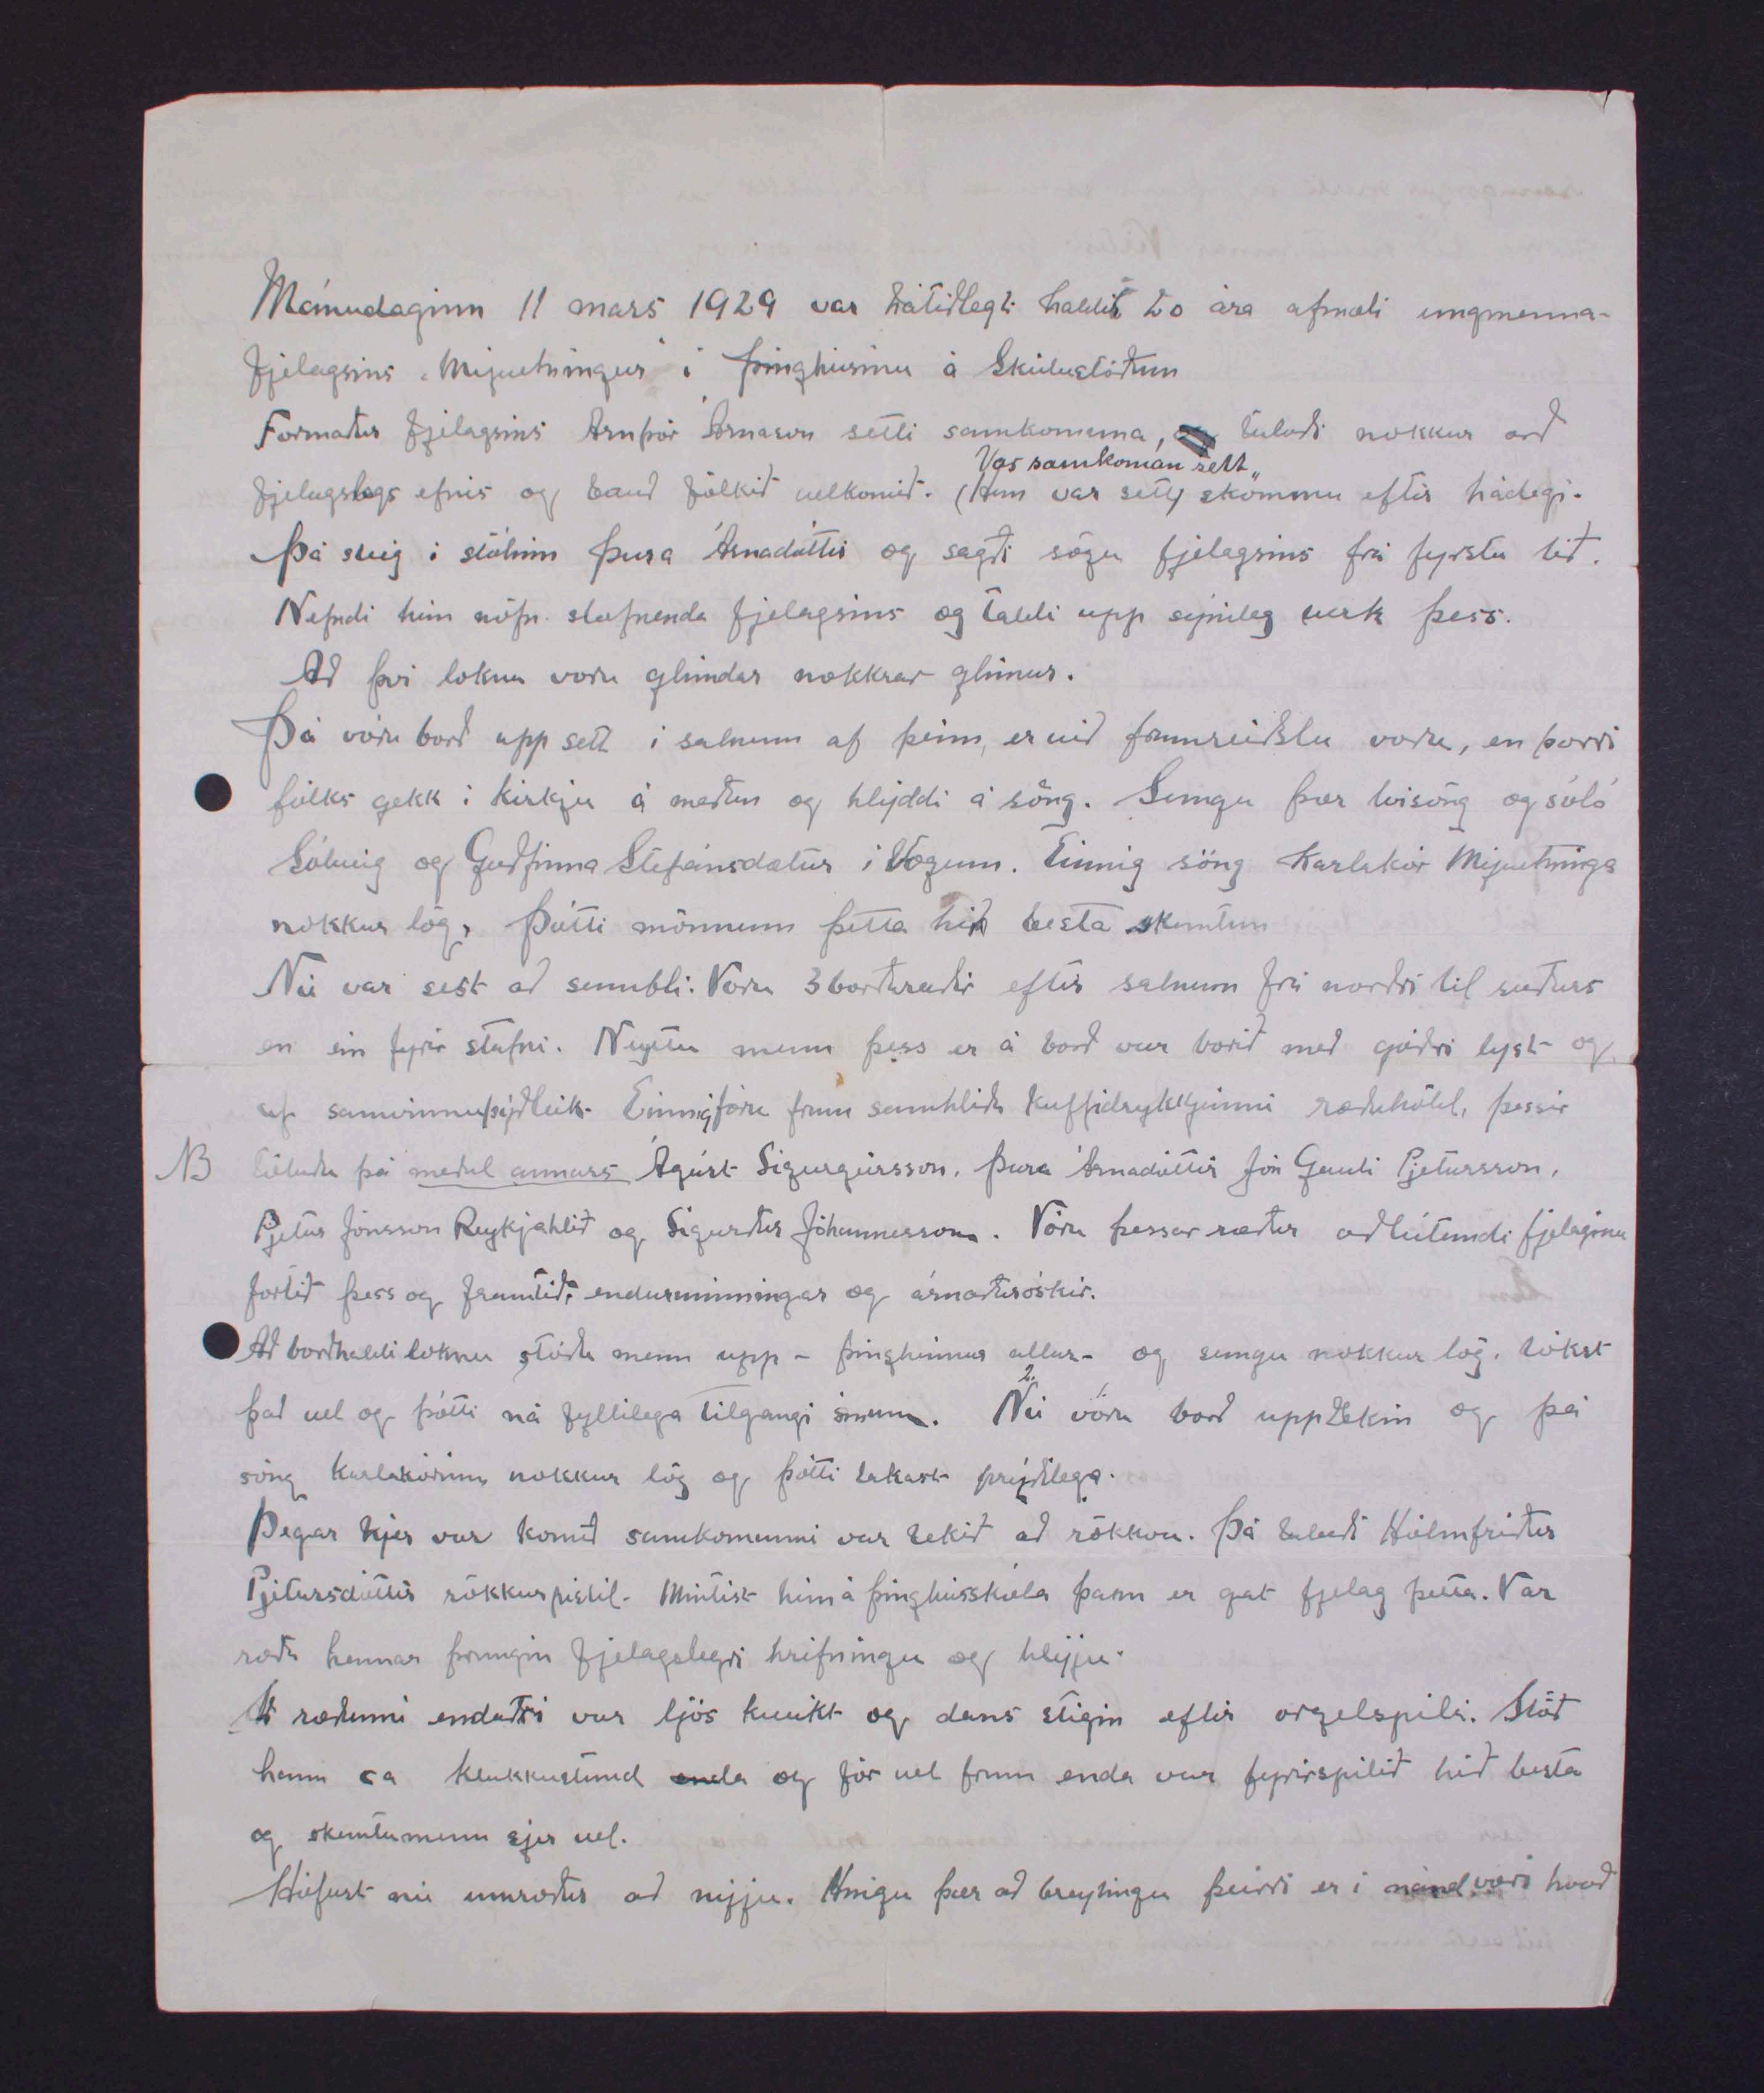 Mánudaginn 11 mars 1929 var hátíðlegt haldið 20 ára afmæli ungmenna-
fjelagsins „Mývetningur" í þinghúsinu á Skútustöðum
Formaður fjelagsins Arnþór Árnason setti samkomuna, talaði nokkur orð
Var samkoman sett
fjelagslegs efnis og bauð fólkið velkomið. (Hún var sett) skömmu eftir hádegi.
Þá steig í stólinn Þura Árnadóttir og sagði sögu fjelagsins frá fyrstu tíð.
Nefndi hún nöfn stofnenda fjelagsins og taldi upp sýnileg verk þess.
Að því loknu voru glímdar nokkrar glímur.
Þá voru borð upp sett í salnum af þeim, er við framreiðslu voru, en þorri
fólks gekk í kirkju á meðan og hlýddi á söng. Sungu þær tvísöng og sóló
Sólveig og Guðfinna Stefánsdætur í Vogum. Einnig söng Karlakór Mývetninga
nokkur lög, Þótti mönnum þetta hin besta skemtun
Nú var sest að sumbli. Voru 3 borðraðir eftir salnum frá norðri til suðurs
en ein fyrir stafni. Neyttu menn þess er á borð var borið með góðri lyst og
af samvinnuþýðleik. Einnig fóru fram samhliða kaffidrykkjunni ræðuhöld, þessir
NB töluðu þá meðal annars Ágúst Sigurgeirsson, Þura Árnadóttir Jón Gauti Pjetursson,
Pjetur Jónsson Reykjahlíð og Sigurður Jóhannesson. Voru þessar ræður aðlútandi fjelaginu
fortíð þess og framtíð, endurminningar og árnaðaróskir.
Að borðhaldi loknu stóðu menn upp - þingheimur allur - og sungu nokkur lög. Tókst
það vel og þótti ná fyllilega tilgangi sínum. 2. Nú voru borð upptekin og þá
söng karlakórinn nokkur lög og þótti takast prýðilega.
Þegar hjer var komið samkomunni var tekið að rökkva. Þá talaði Hólmfríður
Pjetursdóttir rökkurpistil. Mintist hún á þinghússkóla þann er gat fjelag þetta. Var
ræða hennar þrungin fjelagslegri hrifningu og hlýju.
Að ræðunni endaðri var ljós kveikt og dans stigin eftir orgelspili. Stóð
hann ca klukkustund enda og fór vel fram enda var fyrirspilið hið besta
og skemtu menn sjer vel.
Hófust nú umræður að nýju. Hnigu þær að breytingu þeirri er í nánd væri hvað